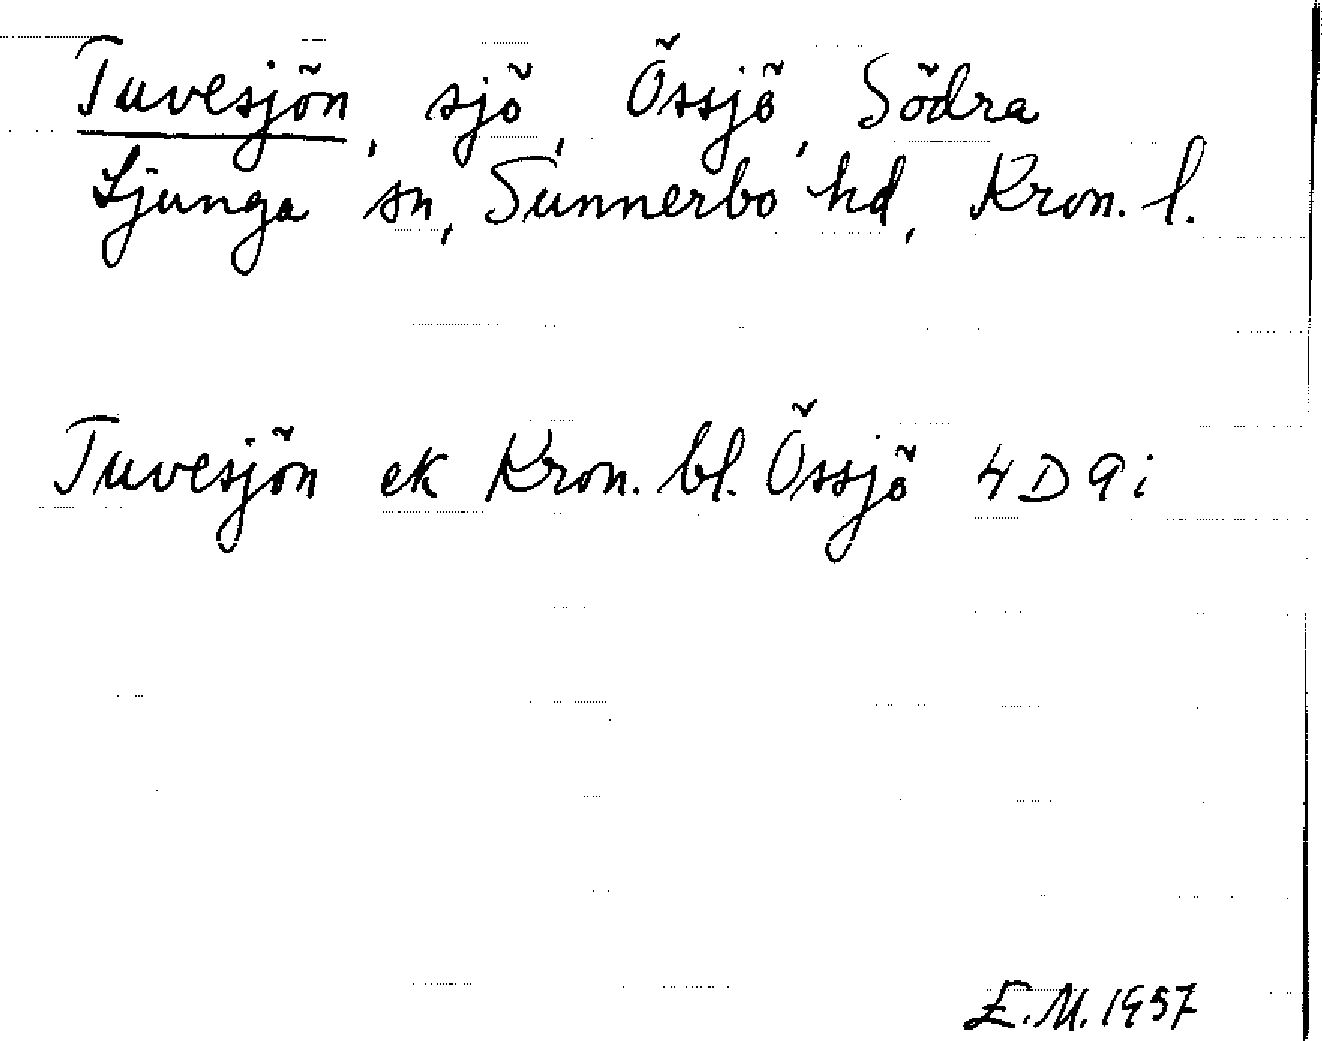 Tuvesjön, sjö, Össjö, Södra
Ljunga sn, Sunnerbo hd, Kron. l.
Tuvesjön ek Kron. bl. Össjö 4D9i
E.M. 1957